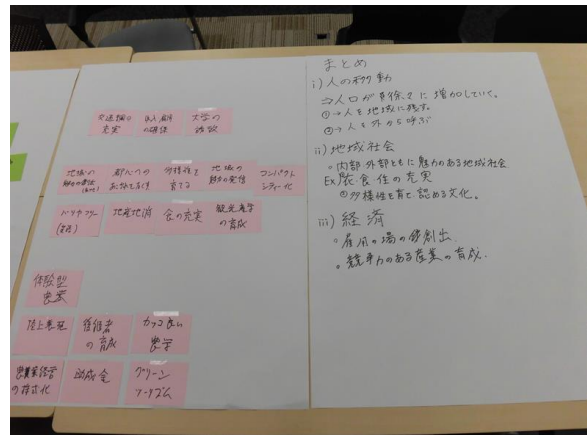 交通網の
充実
大学の
地域の
都心への
多様性を
育てる
地域の
魅力の発信
コンパクト
シティー化
バリヤフリー
地産地消
食の充実
観光産業
の育成
体験型
農業
陸上養殖
後継者
の育成
カッコ良い
農業
農業経営
の株式化
助成金
グリーン
ツーリズム
まとめ
i) 人の移動
⇒人口が徐々に増加していく。
①→人を地域に残す。
②→人を外から呼ぶ
ii) 地域社会
○内部外部ともに魅力のある地域社会
Ex. 衣・食・住の充実
◎多様性を育て認める文化。
iii) 経済
○雇用の場の創出。
○競争力のある産業の育成。